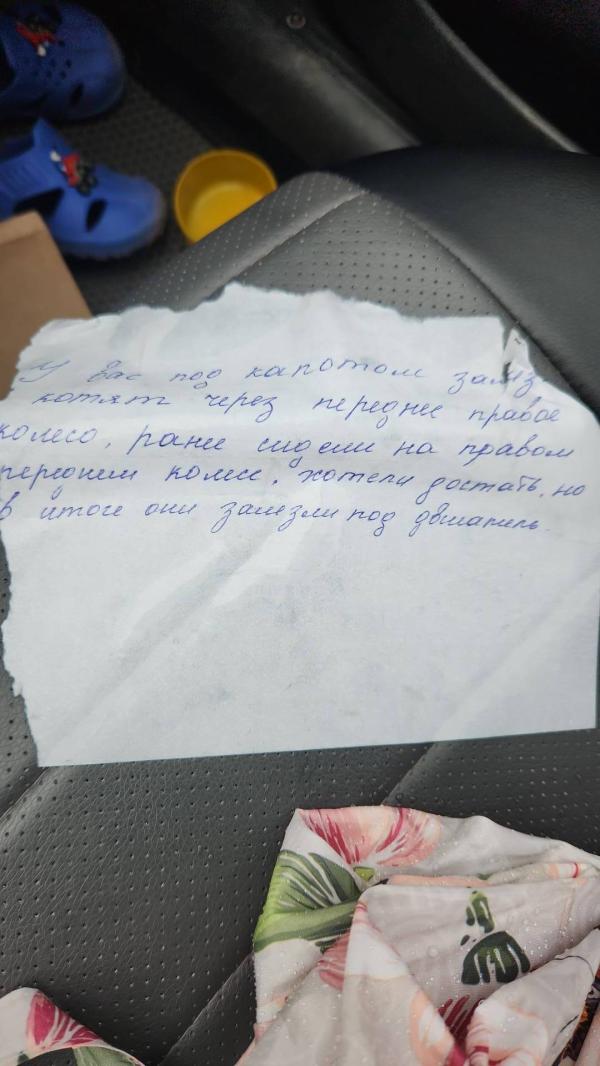 У Вас под капотом залез
котят через переднее правое
колесо, ранее сидели на правом
переднем колесе, хотели достать, но
в итоге они залезли под двигатель.